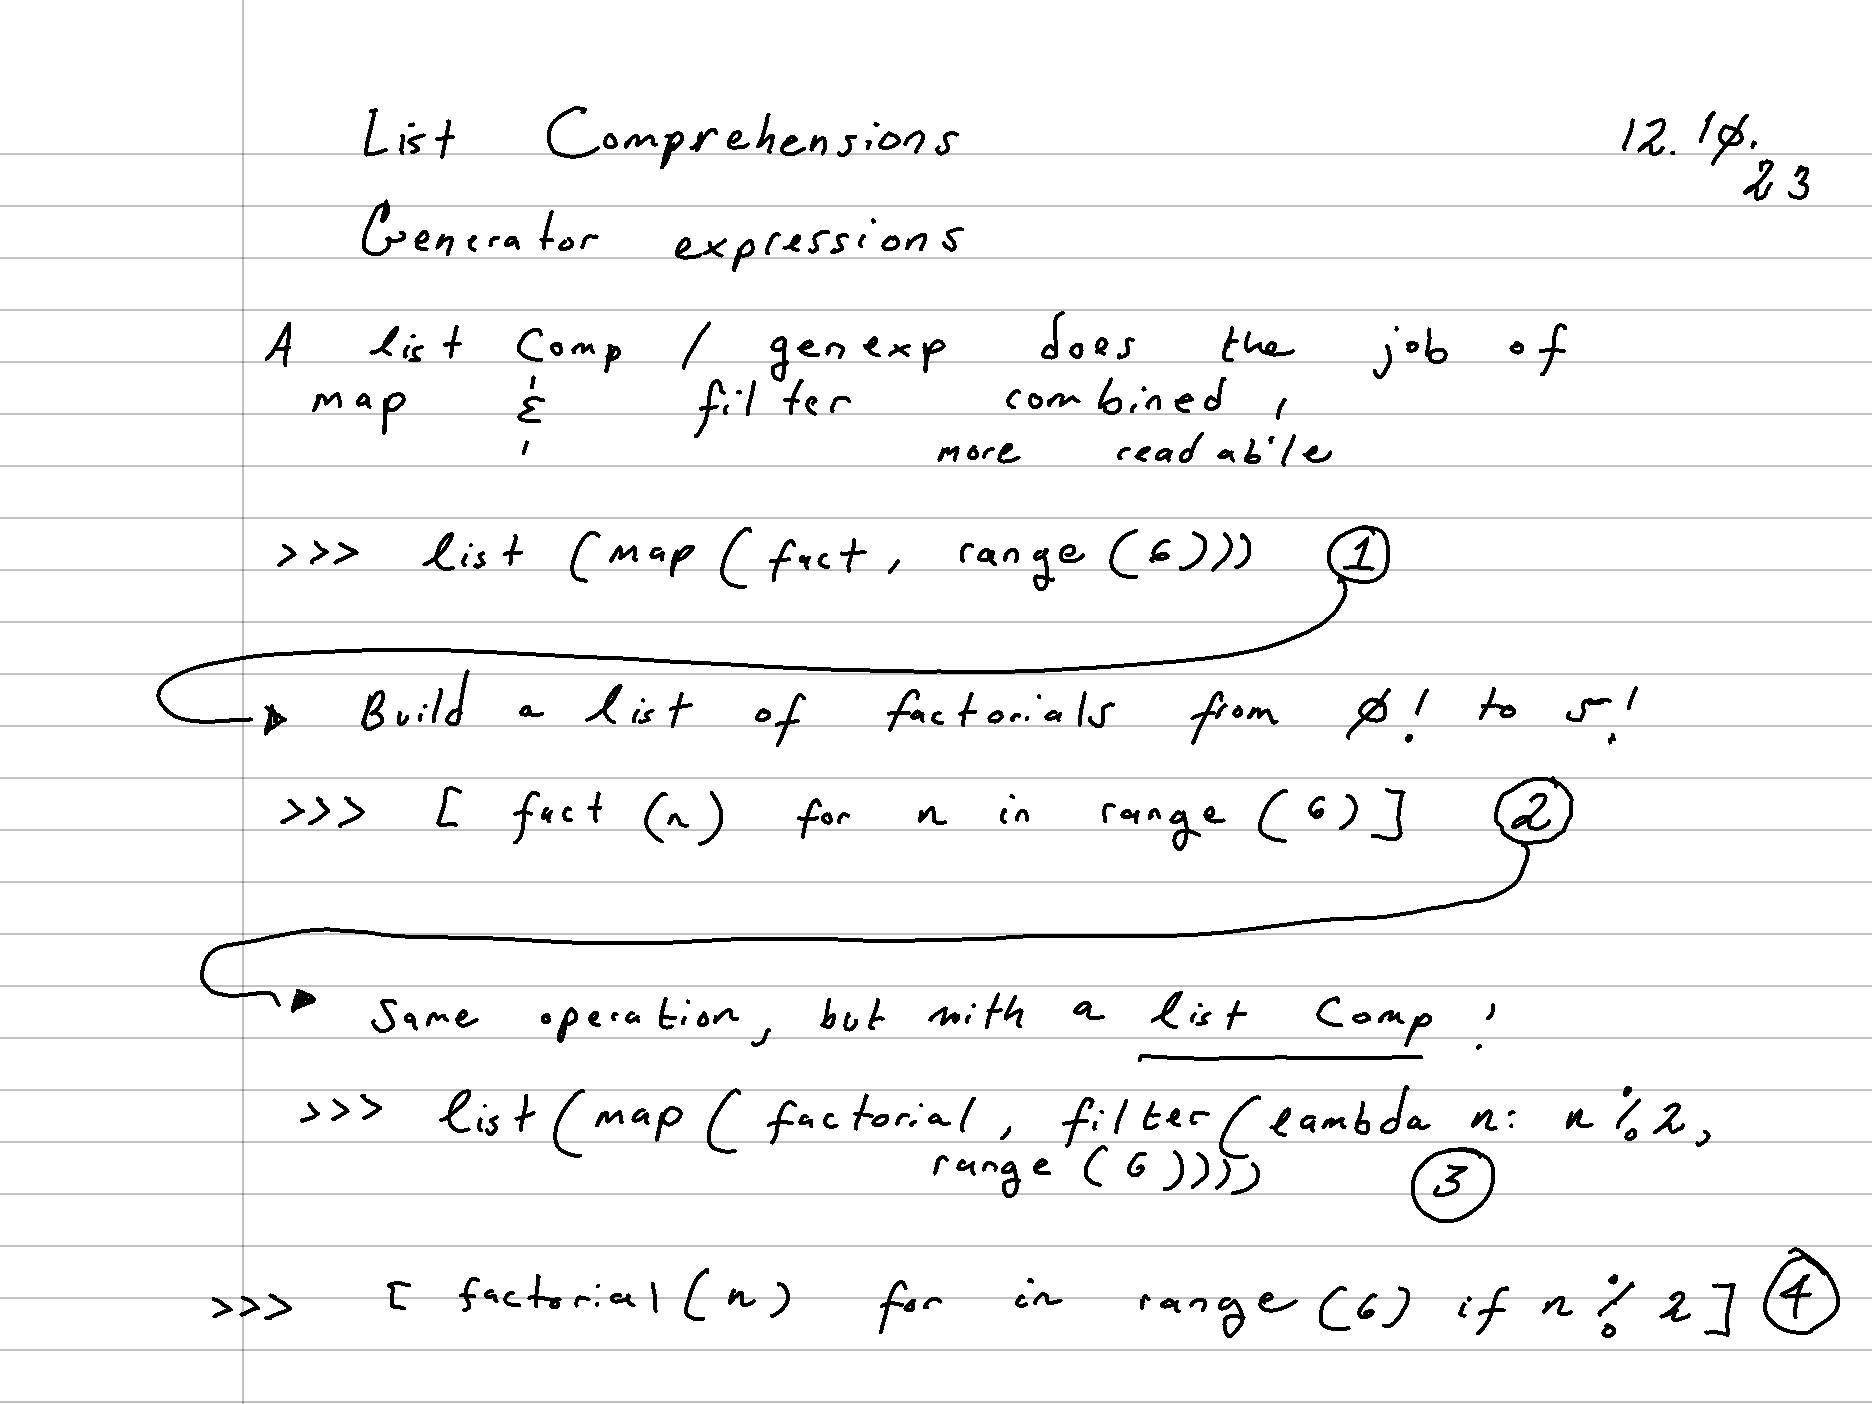 List Comprehensions
12.10.
23
Generator expressions
A list Comp / genexp does the job of
map & filter combined,
more readable
>>> list (map (fact, range (6))) 1
Build a list of factorials from 0! to 5!
>>> [ fact (n) for n in range (6) ] 2
Same operation, but with a list Comp!
>>> list (map ( factorial, filter (lambda n: n % 2,
range (6)))) 3
>>> [ factorial (n) for in range (6) if n % 2 ] 4